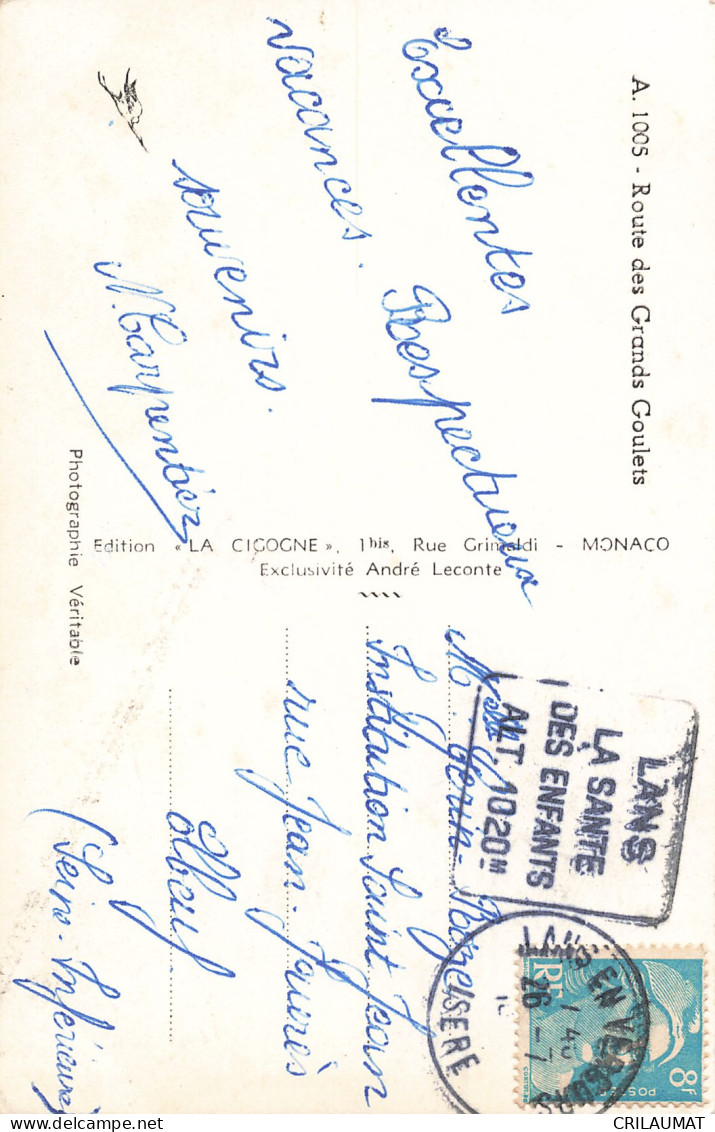 A. 1005 - Route des Grands Goulets
Excellentes
vacances.
Respectueux
souvenirs.
N. Carpentier
Photographie Véritable
Edition « LA CIGOGNE », 1bis, Rue Grimaldi - MONACO
Exclusivité André Leconte
LANS
LA SANTE
DES ENFANTS
ALT. 1020m
EN VERCORS
26 - 7
ISERE
RF
POSTES
8F
Institution Saint Jean
rue Jean-Jaurès
Elbeuf
(Seine-Inférieure)
CRILAUMAT